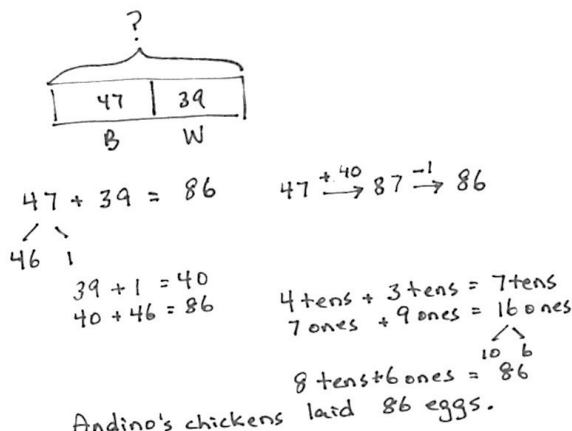 ?
47 39
B W
47 + 39 = 86
46 1
39 + 1 = 40
40 + 46 = 86
47 +40→ 87 -1→ 86
4 tens + 3 tens = 7 tens
7 ones + 9 ones = 16 ones
10 6
8 tens + 6 ones = 86
Andino's chickens laid 86 eggs.